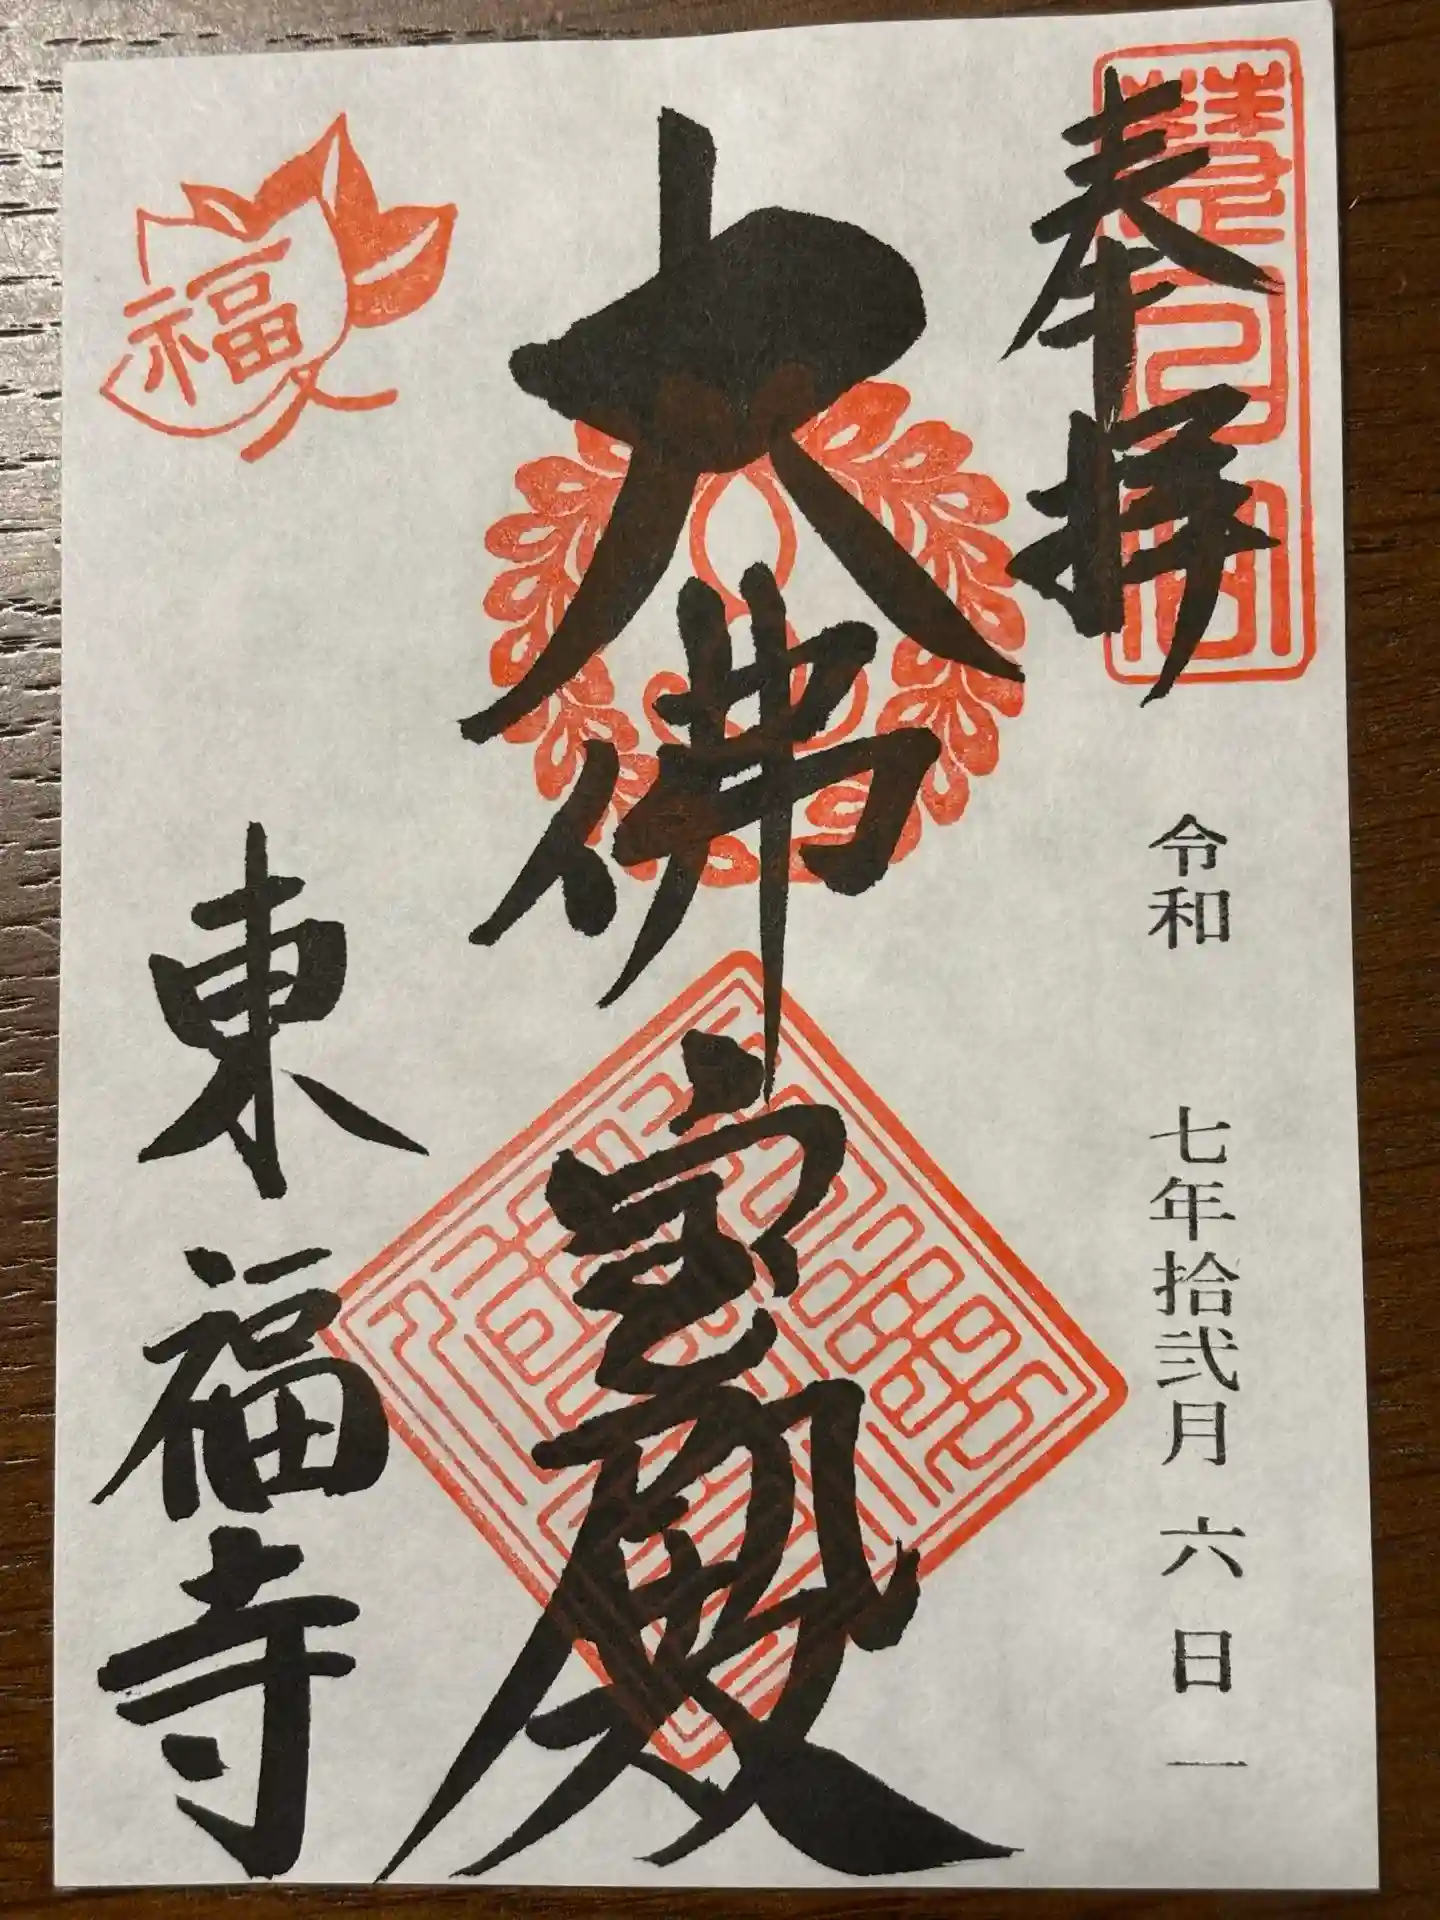 奉拝
令和 七年拾弐月 六日
大佛宝殿
福
東福寺